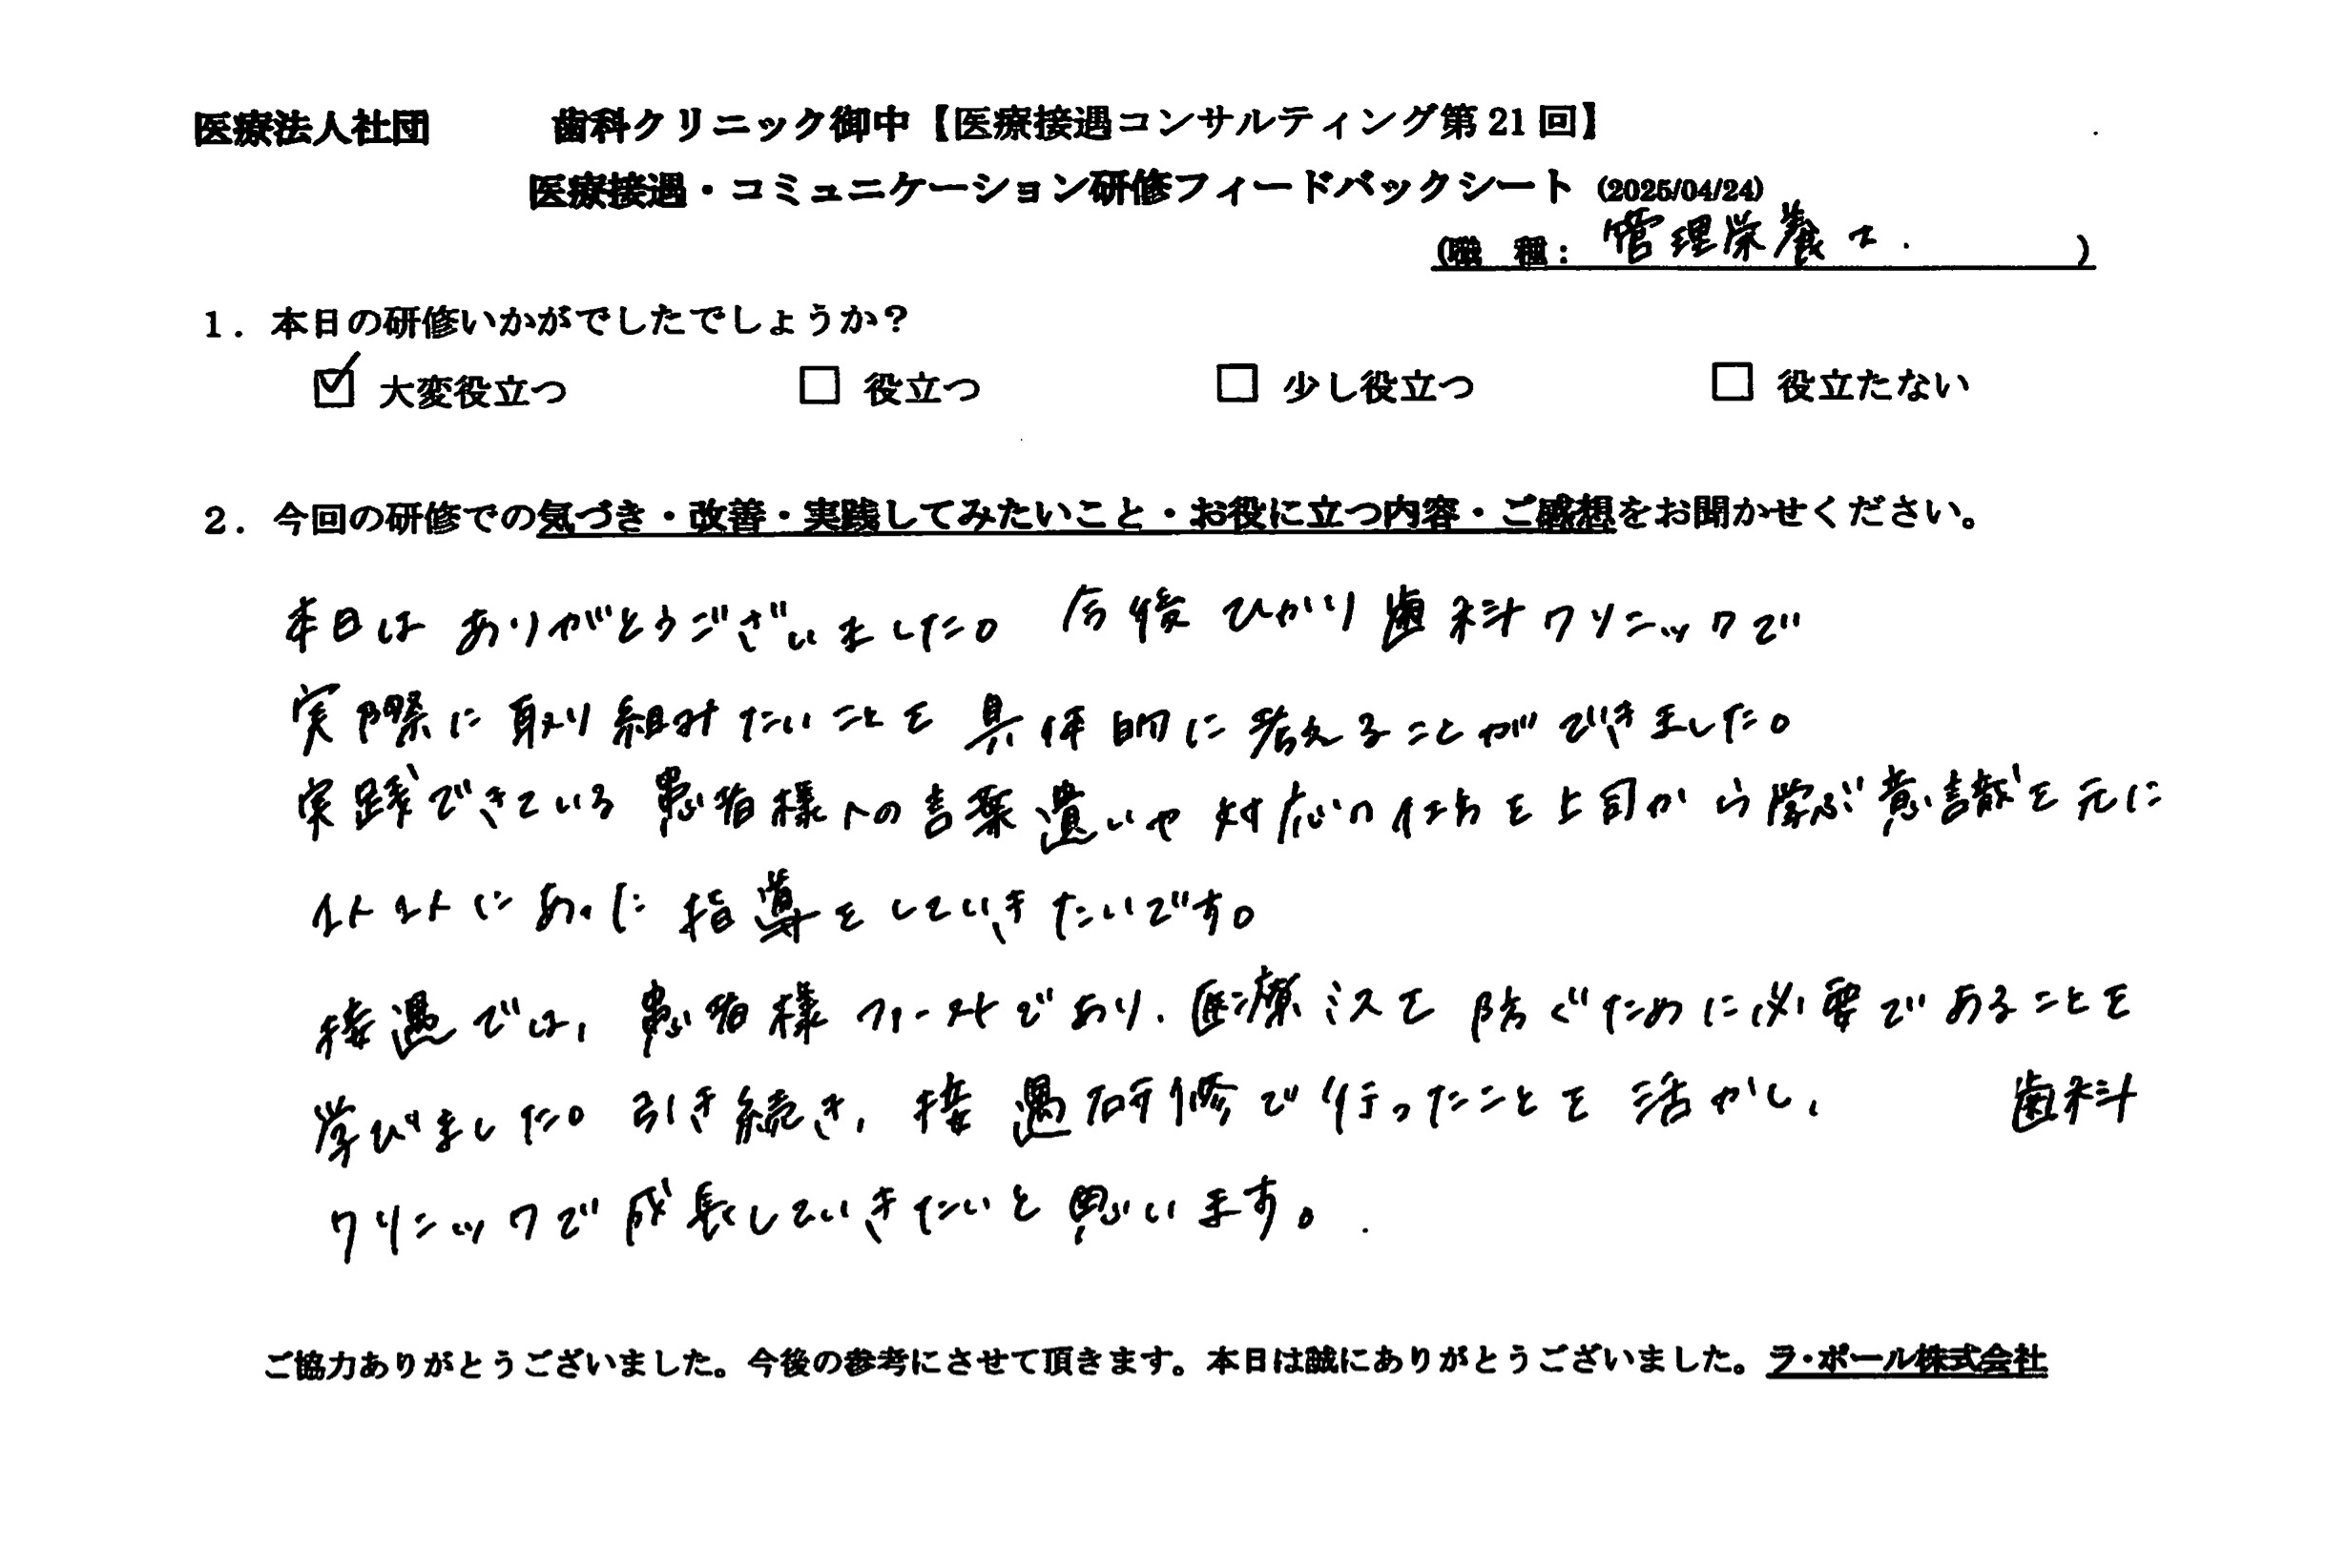 医療法人社団 歯科クリニック御中【医療接遇コンサルティング第21回】
医療接遇・コミュニケーション研修フィードバックシート (2025/04/24)
(職 種: 管理栄養士. )
1. 本日の研修いかがでしたでしょうか?
☑ 大変役立つ □ 役立つ □ 少し役立つ □ 役立たない
2. 今回の研修での気づき・改善・実践してみたいこと・お役に立つ内容・ご感想をお聞かせください。
本日はありがとうございました。今後ひかり歯科クリニックで
実際に取り組みたいことを具体的に考えることができました。
実践できている患者様への言葉遣いや対応の仕方を上司から学ぶ意識を元に
1人1人にあった指導をしていきたいです。
接遇では、患者様ファーストであり、医療ミスを防ぐために必要であることを
学びました。引き続き、接遇研修で行ったことを活かし、 歯科
クリニックで成長していきたいと思います。
ご協力ありがとうございました。今後の参考にさせて頂きます。本日は誠にありがとうございました。ラ・ポール株式会社